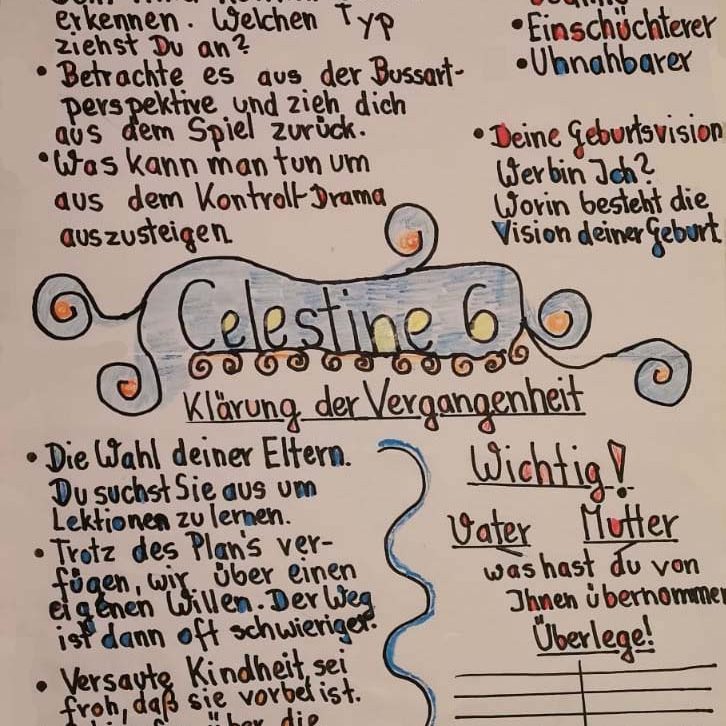 erkennen. Welchen Typ
ziehst Du an?
• Betrachte es aus der Bussart-
perspektive und zieh dich
aus dem Spiel zurück.
• Was kann man tun um
aus dem Kontroll-Drama
auszusteigen
• Einschüchterer
• Uhnahbarer
• Deine Geburtsvision
Wer bin Ich?
Worin besteht die
Vision deiner Geburt
Celestine 6
Klärung der Vergangenheit
• Die Wahl deiner Eltern.
Du suchst Sie aus um
Lektionen zu lernen.
• Trotz des Plan's ver-
fügen, wir über einen
eigenen Willen. Der Weg
ist dann oft schwieriger.
• Versaute Kindheit sei
froh, daß sie vorbei ist.
über die
Wichtig!
Vater Mutter
was hast du von
Ihnen übernommen
Überlege!